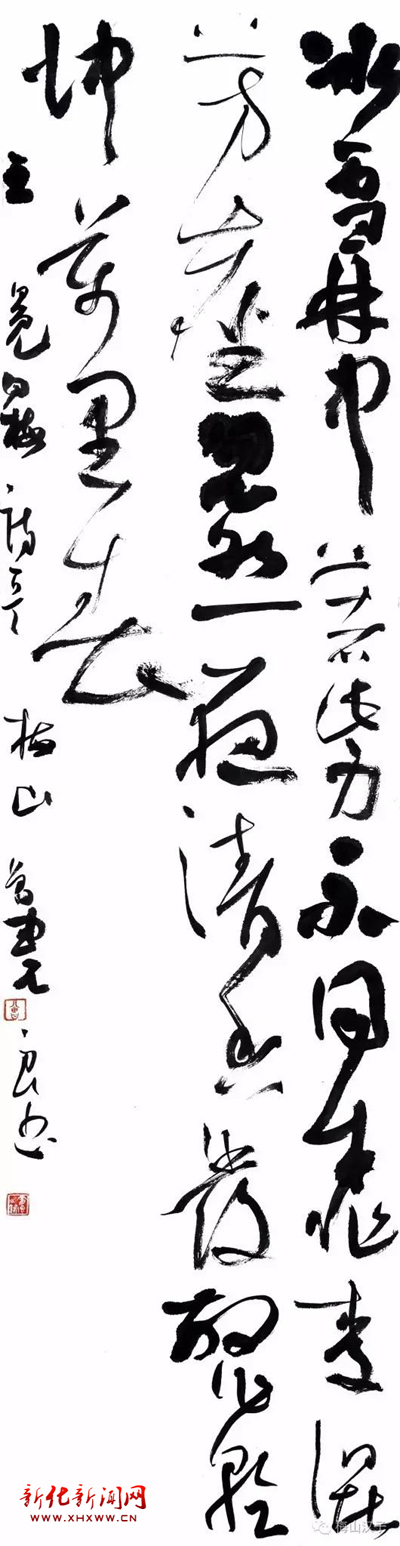 冰雪林中著此身不同桃李混
芳塵忽然一夜清香發散作乾
坤萬里春
王冕白梅詩 梅山
新化新闻网
WWW.XHXWW.CN
梅山汉子